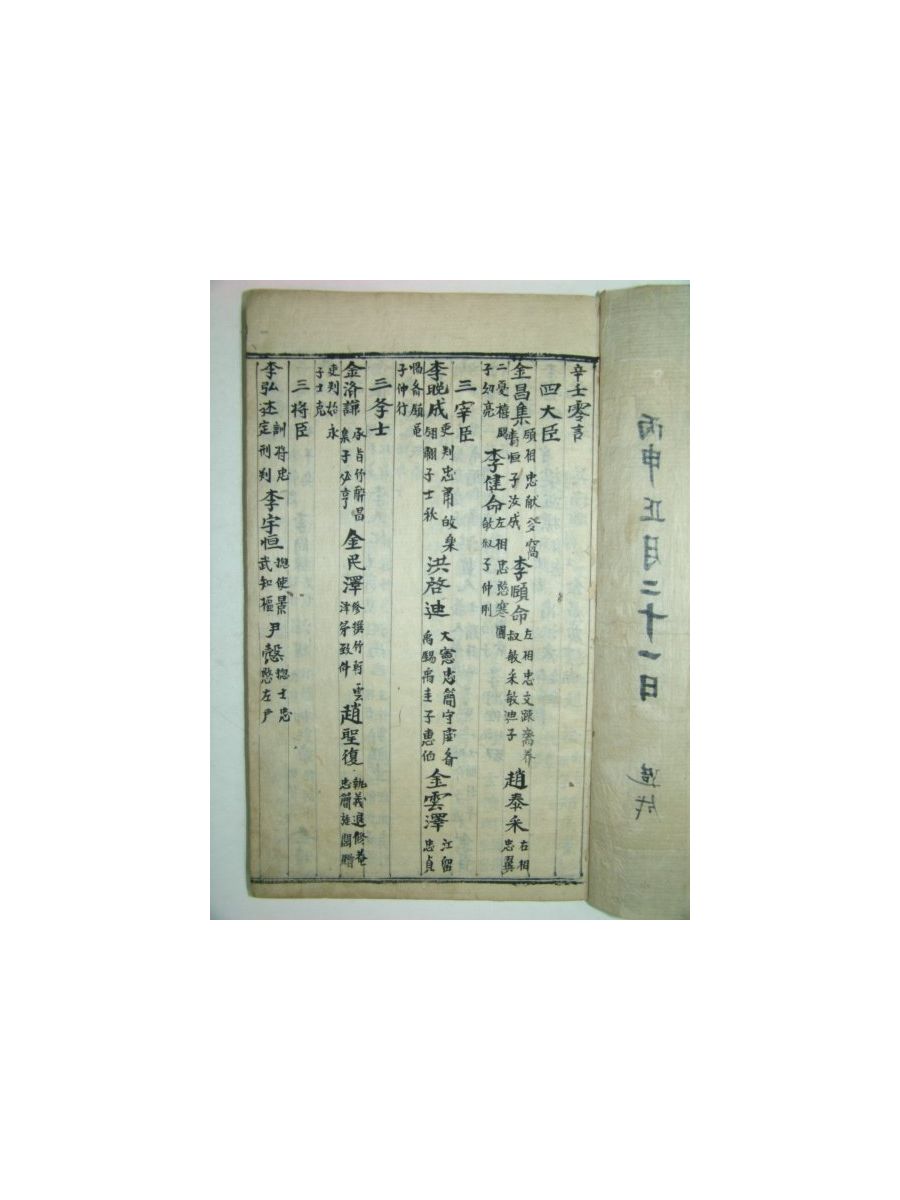 丙申正月二十一日
辛壬零言
四大臣
金昌集 領相忠献 李頤命 左相忠文踈齋養叔敏采敏迪子 趙泰采 右相忠翼
二憂 李健命 左相忠愍寒圃敏叙子仲剛
子幼亮
三宰臣
李晚成 吏判忠 士秋 洪啓迪 大憲忠簡守虚齋禹錫禹圭子惠伯 金雲澤 江留忠貞
子仲行
三學士
金濟謙 承旨竹醉昌集子必亨 金民澤 修撰竹軒雲澤弟致仲 趙聖復 執義退修菴忠簡
吏判 永
子士克
三將臣
李弘述 訓將忠定刑判 李宇恒 摠使景武知樞 尹慤 摠士忠愍左尹